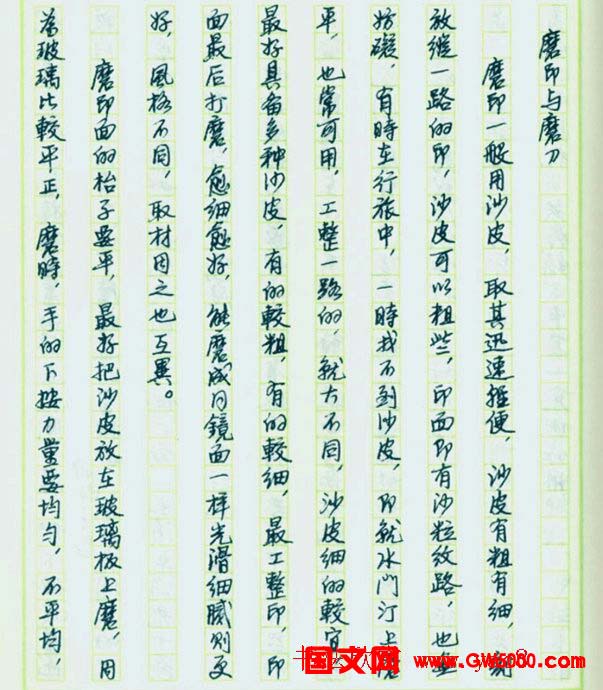 磨印与磨刀
磨印一般用沙皮，取其迅速推便，沙皮有粗有细，刻
放纵一路的印，沙皮可以粗些，印面即有沙粒纹路，也无
妨礙，有時在行旅中，一時找不到沙皮，即就水門汀上磨
平，也常可用，工整一路的，就大不同，沙皮细的較宜
最好具备多种沙皮，有的較粗，有的較细，最工整印，印
面最后打磨，愈细愈好，能磨成同鏡面一样光滑细膩则更
好，風格不同，取材因之也互異。
磨印面的枱子要平，最好把沙皮放在玻璃板上磨，因
為玻璃比較平正，磨時，手的下按力量要均匀，不平均，
国文网 www.GW5000.com